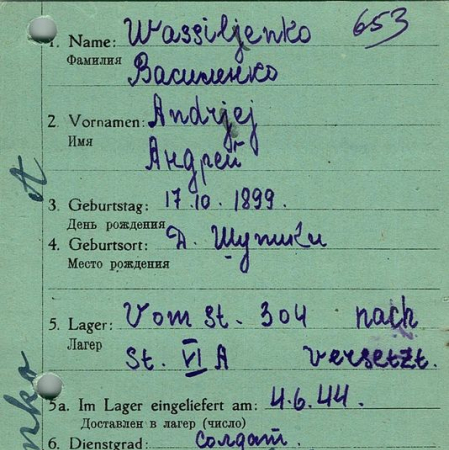 653
1. Name: Wassiljenko
Фамилия Василенко
2. Vornamen: Andrjej
Имя Андрей
3. Geburtstag: 17.10.1899.
День рождения
4. Geburtsort: Д. Шупики
Место рождения
5. Lager: Vom St. 304 nach
Лагер St. VI A versetzt.
5a. Im Lager eingeliefert am: 4.6.44.
Доставлен в лагер (число)
6. Dienstgrad: Солдат.